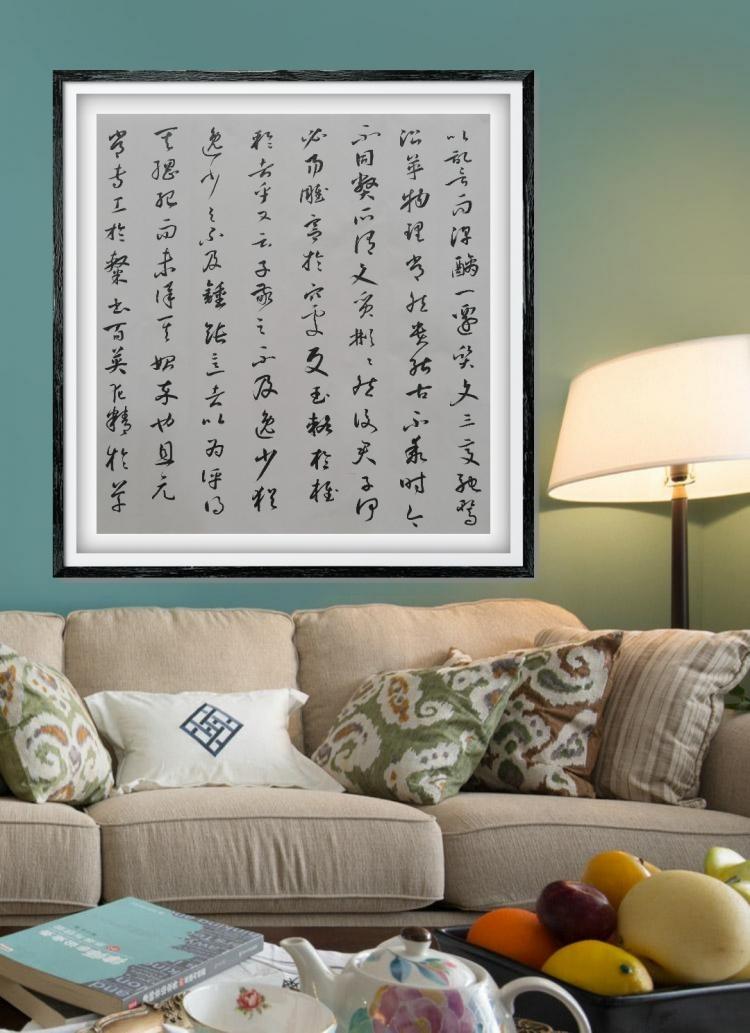 以記言而淳醨一遷質文三變馳鶩
沿革物理常然貴能古不乖時今
不同弊所謂文質彬〻然後君子何
必易雕宮於穴處反玉輅於椎
輪者乎又云子敬之不及逸少猶
逸少之不及鍾張意者以為評得
其綱紀而未詳其始卒也且元
常專工於隸書百英尤精於草